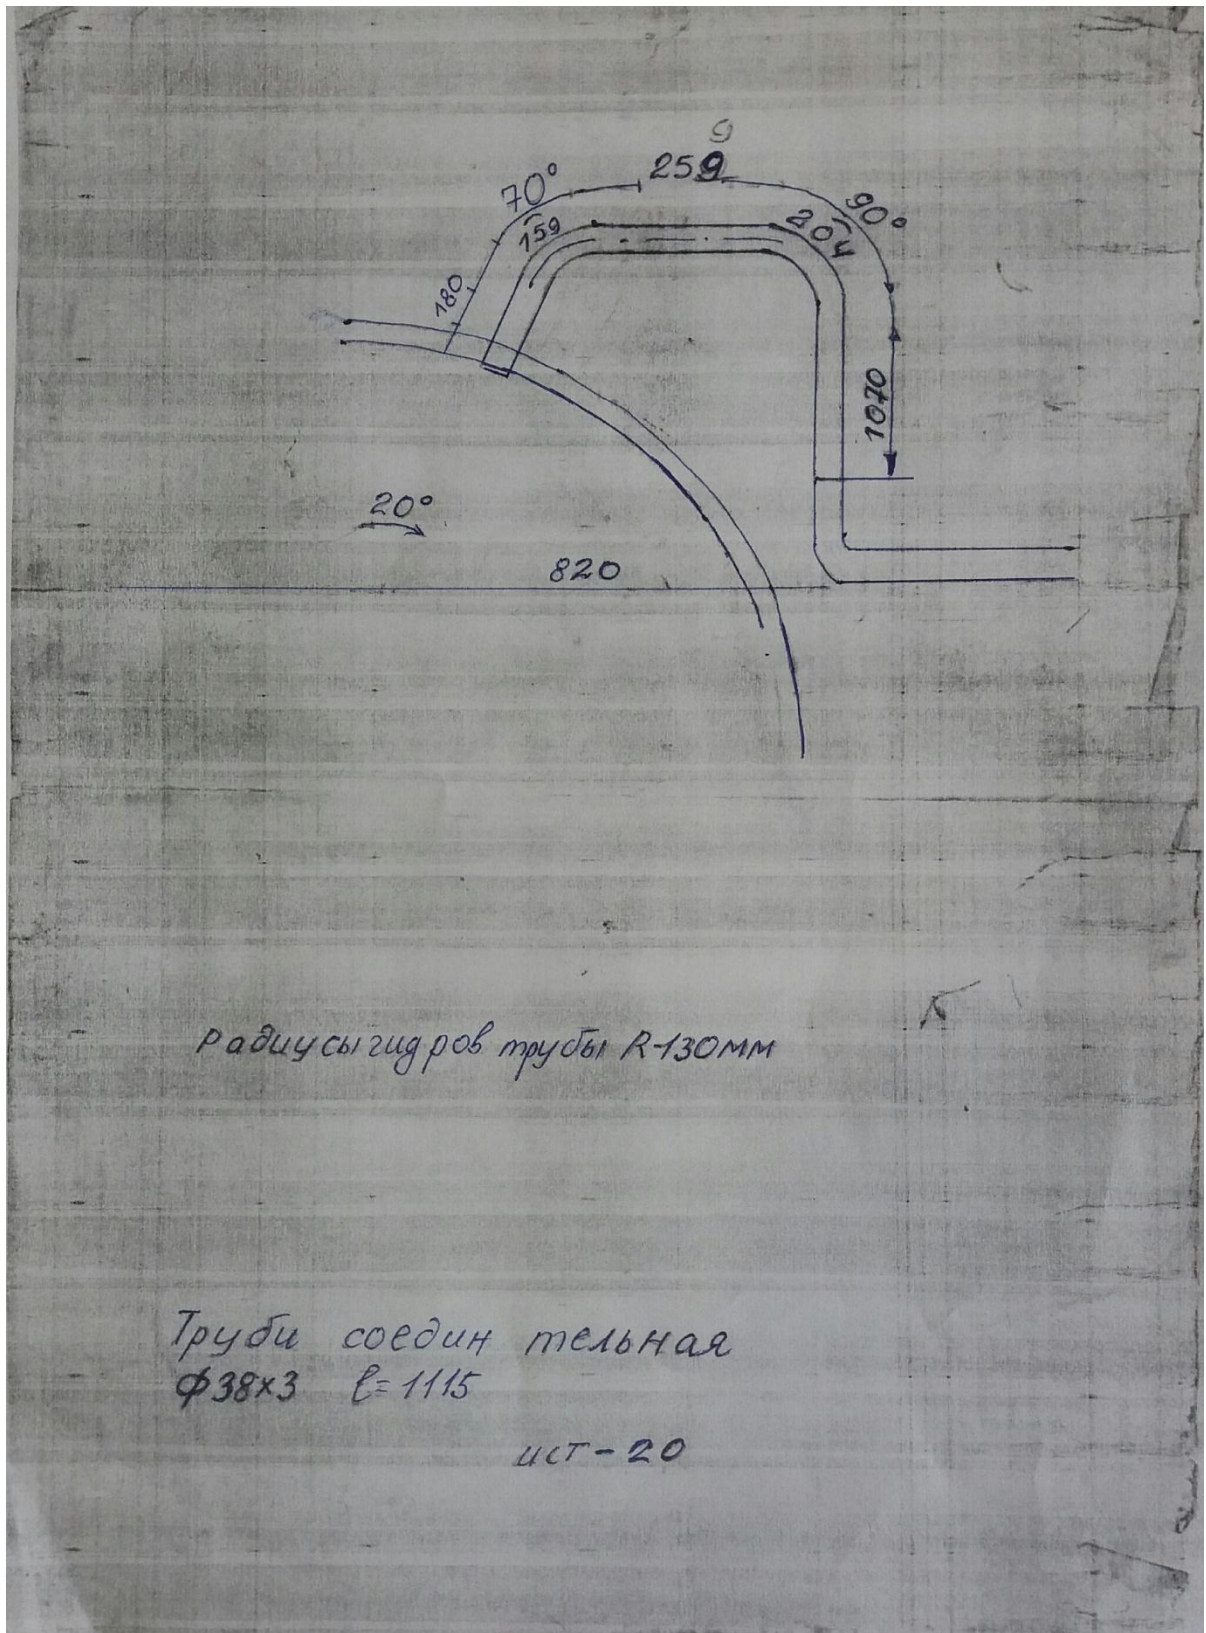 9
259
70°
90°
159
204
180
1070
20°
820
Радиусы гидров трубы R-130мм
Труби соедин тельная
Ф38х3 ℓ=1115
ист-20